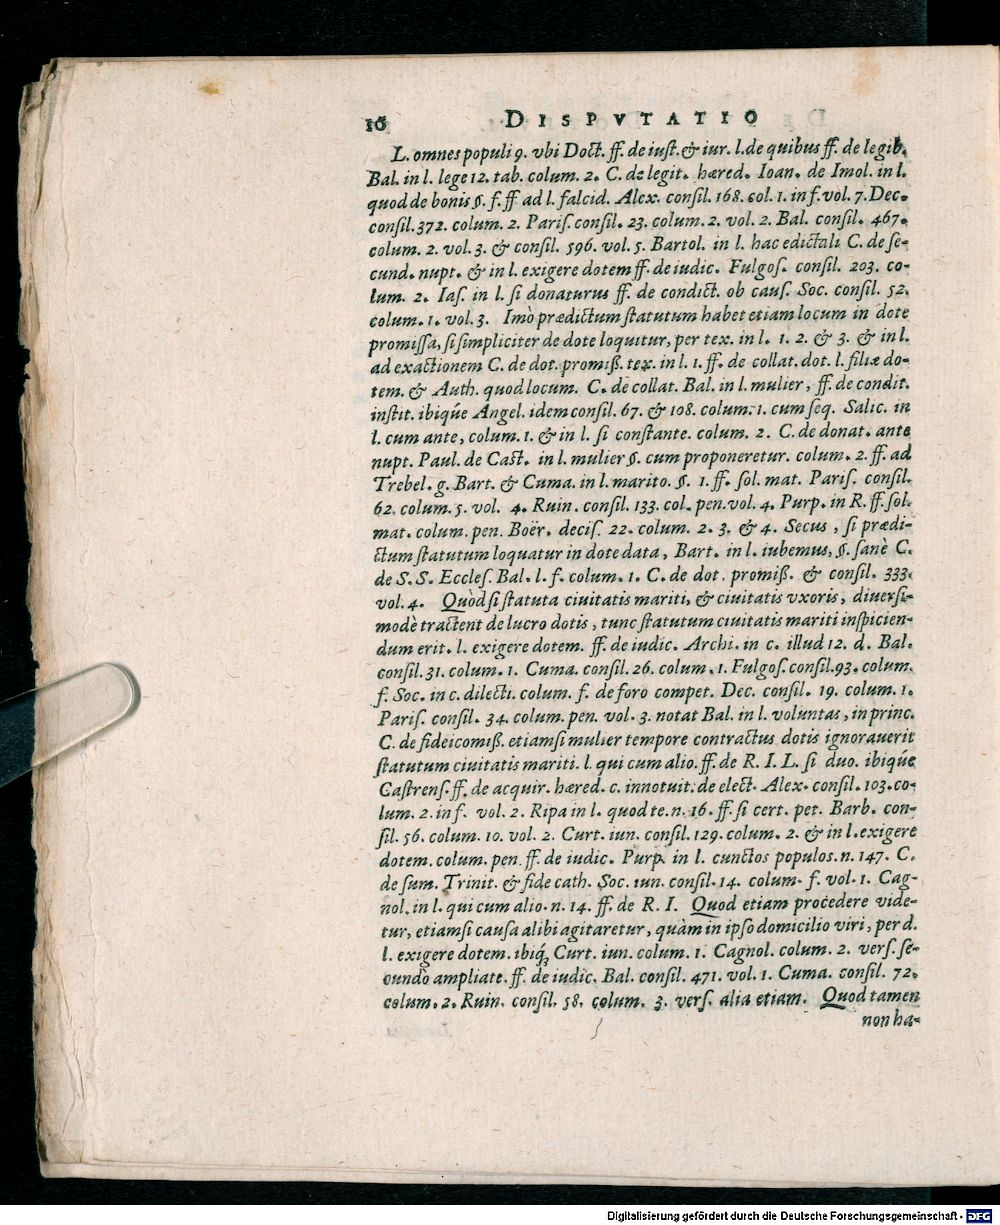 16 DISPVTATIO
L. omnes populi 9. vbi Doct. ff. de iust. & iur. l. de quibus ff. de legib.
Bal. in l. lege 12. tab. colum. 2. C. de legit. hæred. Ioan. de Imol. in l.
quod de bonis §. f. ff ad l. falcid. Alex. consil. 168. col. 1. in f. vol. 7. Dec.
consil. 372. colum. 2. Paris. consil. 23. colum. 2. vol. 2. Bal. consil. 467.
colum. 2. vol. 3. & consil. 596. vol. 5. Bartol. in l. hac edictali C. de se-
cund. nupt. & in l. exigere dotem ff. de iudic. Fulgos. consil. 203. co-
lum. 2. Ias. in l. si donaturus ff. de condict. ob caus. Soc. consil. 52.
colum. 1. vol. 3. Imò prædictum statutum habet etiam locum in dote
promissa, si simpliciter de dote loquitur, per tex. in l. 1. 2. & 3. & in l.
ad exactionem C. de dot. promiß. tex. in l. 1. ff. de collat. dot. l. filiæ do-
tem. & Auth. quod locum. C. de collat. Bal. in l. mulier, ff. de condit.
instit. ibiq́ue Angel. idem consil. 67. & 108. colum. 1. cum seq. Salic. in
l. cum ante, colum. 1. & in l. si constante. colum. 2. C. de donat. ante
nupt. Paul. de Cast. in l. mulier §. cum proponeretur. colum. 2. ff. ad
Trebel. g. Bart. & Cuma. in l. marito. §. 1. ff. sol. mat. Paris. consil.
62. colum. 5. vol. 4. Ruin. consil. 133. col. pen. vol. 4. Purp. in R. ff. sol.
mat. colum. pen. Boër. decis. 22. colum. 2. 3. & 4. Secus, si prædi-
ctum statutum loquatur in dote data, Bart. in l. iubemus, §. sanè C.
de S. S. Eccles. Bal. l. f. colum. 1. C. de dot. promiß. & consil. 333.
vol. 4. Quòd si statuta ciuitatis mariti, & ciuitatis vxoris, diuersi-
modè tractent de lucro dotis, tunc statutum ciuitatis mariti inspicien-
dum erit. l. exigere dotem. ff. de iudic. Archi. in c. illud 12. d. Bal.
consil. 31. colum. 1. Cuma. consil. 26. colum. 1. Fulgos. consil. 93. colum.
f. Soc. in c. dilecti. colum. f. de foro compet. Dec. consil. 19. colum. 1.
Paris. consil. 34. colum. pen. vol. 3. notat Bal. in l. voluntas, in princ.
C. de fideicomiß. etiamsi mulier tempore contractus dotis ignorauerit
statutum ciuitatis mariti. l. qui cum alio. ff. de R. I. L. si duo. ibiq́ue
Castrens. ff. de acquir. hæred. c. innotuit. de elect. Alex. consil. 103. co-
lum. 2. in f. vol. 2. Ripa in l. quod te. n. 16. ff. si cert. pet. Barb. con-
sil. 56. colum. 10. vol. 2. Curt. iun. consil. 129. colum. 2. & in l. exigere
dotem. colum. pen. ff. de iudic. Purp. in l. cunctos populos. n. 147. C.
de sum. Trinit. & fide cath. Soc. iun. consil. 14. colum. f. vol. 1. Cag-
nol. in l. qui cum alio. n. 14. ff. de R. I. Quod etiam procedere vide-
tur, etiamsi causa alibi agitaretur, quàm in ipso domicilio viri, per d.
l. exigere dotem. ibiq́; Curt. iun. colum. 1. Cagnol. colum. 2. vers. se-
cundò ampliate. ff. de iudic. Bal. consil. 471. vol. 1. Cuma. consil. 72.
colum. 2. Ruin. consil. 58. colum. 3. vers. alia etiam. Quod tamen
non ha-
Digitalisierung gefördert durch die Deutsche Forschungsgemeinschaft - DFG